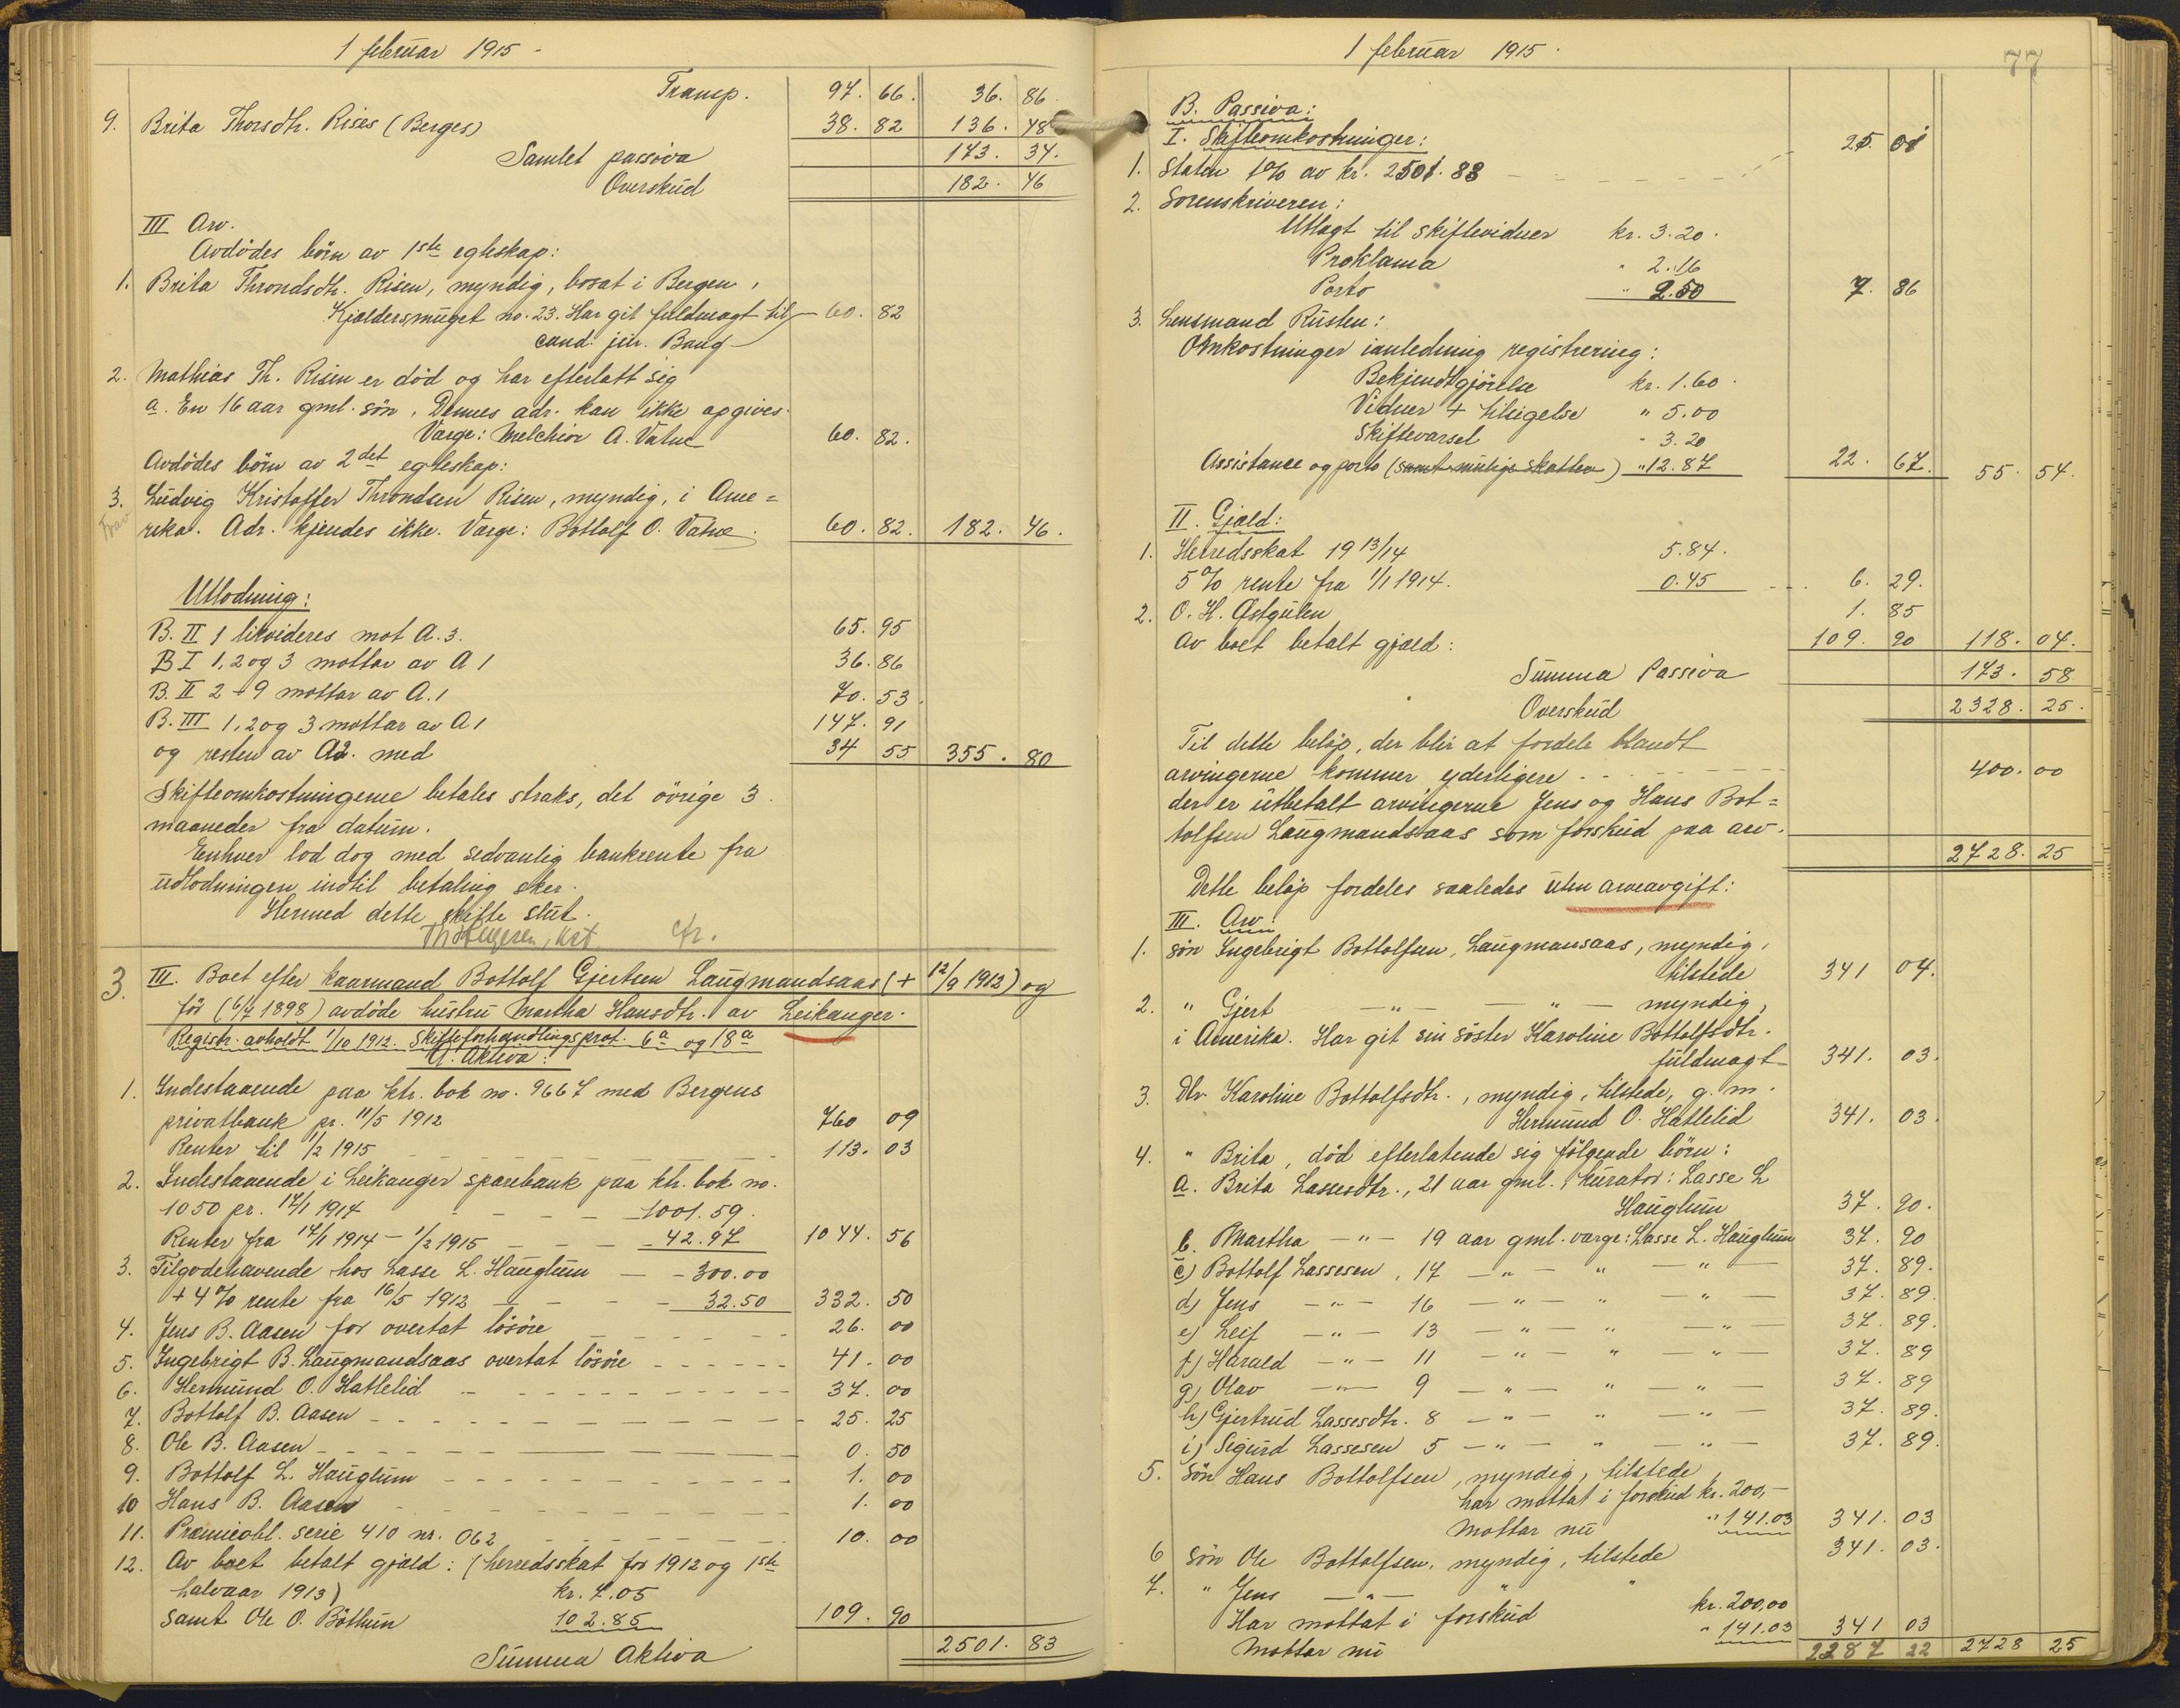 1 februar 1915 -
Transp. 97. 66. 36. 86.
9. Brita Thorsdtr. Rises (Berges) 38. 82 136. 48
Samlet passiva 173. 34.
Overskud 182. 46
III Arv.
Avdödes börn av 1ste egteskap:
1. Brita Throndsdtr. Risen, myndig, bosat i Bergen,
Kjældersmuget no. 23. Har git fuldmagt til 60. 82
cand. jur. Baug
2. Mathias Th. Risen er död og har efterlatt sig
a. En 16 aar gml. sön. Dennes adr. kan ikke opgives.
Værge: Melchior A. Vatne 60. 82.
Avdödes börn av 2det egteskap:
3. Ludvig Kristoffer Throndsen Risen, myndig, i Ame=
rika. Adr. kjendes ikke. Værge: Bottolf O. Vatne. 60. 82. 182. 46.
Utlodning:
B. II 1 likvideres mot A. 3. 65. 95
B I 1, 2 og 3 mottar av A 1 36. 86
B. II 2 - 9 mottar av A. 1 70. 53.
B. III 1, 2 og 3 mottar av A 1 147. 91
og resten av A2. med 34 55 355. 80
Skifteomkostningerne betales straks, det övrige 3
maaneder fra datum.
Enhver lod dog med sedvanlig bankrente fra
udlodningen indtil betaling sker.
Hermed dette skifte slut.
cfr.
3. III. Boet efter kaarmand Bottolf Gjertsen Laugmandsaas (+ 12/9 1912) og
för (6/7 1898) avdöde hustru Martha Hansdtr. av Leikanger.
Registr. avholdt 1/10 1912. Skifteforhandlingsprot. 6a og 18a
A. Aktiva:
1. Indestaaende paa ktr. bok no. 9667 med Bergens
privatbank pr. 11/5 1912 760 09
Renter til 1/2 1915 113. 03
2. Indestaaende i Leikanger sparebank paa ktr. bok no.
1050 pr. 14/1 1914 1001. 59.
Renter fra 14/1 1914 - 1/2 1915 42. 97 1044. 56
3. Tilgodehavende hos Lasse L. Hauglum 300.00
+ 4% rente fra 16/5 1912 32.50 332. 50
4. Jens B. Aasen for overtat lösöre 26. 00
5. Ingebrigt B. Laugmandsaas overtat lösöre 41. 00
6. Hermund O. Hatlelid 37. 00
7. Bottolf B. Aasen 25. 25
8. Ole B. Aasen 0. 50
9. Bottolf L. Hauglum 1. 00
10 Hans B. Aasen 1. 00
11. Præmieobl. serie 410 nr. 062 10. 00
12. Av boet betalt gjæld: (herredsskat for 1912 og 1ste
halvaar 1913) kr. 7.05
samt Ole O. Böthun 102.85 109. 90
Summa Aktiva 2501. 83
1 februar 1915.
77
B. Passiva:
I. Skifteomkostninger:
1. Staten 1% av kr. 2501. 83 25. 01
2. Sorenskriveren:
Utlagt til skiftevidner kr. 3.20.
Proklama " 2.16
Porto " 2.50 7. 86
3. Lensmand Rusten:
Omkostninger ianledning registrering:
Bekjendtgjörelse kr. 1.60.
Vidner + tilsigelse " 5.00
Skiftevarsel " 3.20
Assistance og porto (samt mulige skatter) " 12.87 22. 67. 55. 54.
II. Gjæld:
1. Herredsskat 1913/14 5.84.
5% rente fra 1/1 1914. 0.45 6. 29.
2. O. H. Østgulen 1. 85
Av boet betalt gjæld: 109. 90 118. 04.
Summa Passiva 173. 58
Overskud 2328. 25.
Til dette belöp, der blir at fordele blandt
arvingerne kommer yderligere 400. 00
der er utbetalt arvingerne Jens og Hans Bot=
tolfsen Laugmandsaas som forskud paa arv.
2728. 25
Dette belöp fordeles saaledes uten arveavgift:
III. Arv:
1. sön Ingebrigt Bottolfsen, Laugmansaas, myndig,
tilstede 341 04.
2. " Gjert — " — — " — myndig,
i Amerika. Har git sin söster Karoline Bottolfsdtr.
fuldmagt 341. 03.
3. Dtr. Karoline Bottolfsdtr., myndig, tilstede, g. m.
Hermund O. Hatlelid 341. 03.
4. " Brita, död efterlatende sig fölgende börn:
a. Brita Lassesdtr., 21 aar gml. kurator: Lasse L
Hauglum 37. 90.
b. Martha — " — 19 aar gml. værge: Lasse L. Hauglum 37. 90
c) Bottolf Lassesen, 17 — " — " — " — 37. 89.
d) Jens — " — 16 — " — " — " — 37. 89.
e) Leif — " — 13 — " — " — " — 37. 89.
f) Harald — " — 11 — " — " — " — 37. 89
g) Olav — " — 9 — " — " — " — 37. 89
h) Gjertrud Lassesdtr. 8 — " — " — " — 37. 89.
i) Sigurd Lassesen 5 — " — " — " — 37. 89.
5. Sön Hans Bottolfsen, myndig, tilstede
har mottat i forskud kr. 200,-
Mottar nu " 141.03 341. 03
6 Sön Ole Bottolfsen, myndig, tilstede 341. 03.
7. " Jens — " — " "
Har mottat i forskud kr. 200,00
Mottar nu " 141.03 341 03
2387 22 2728 25